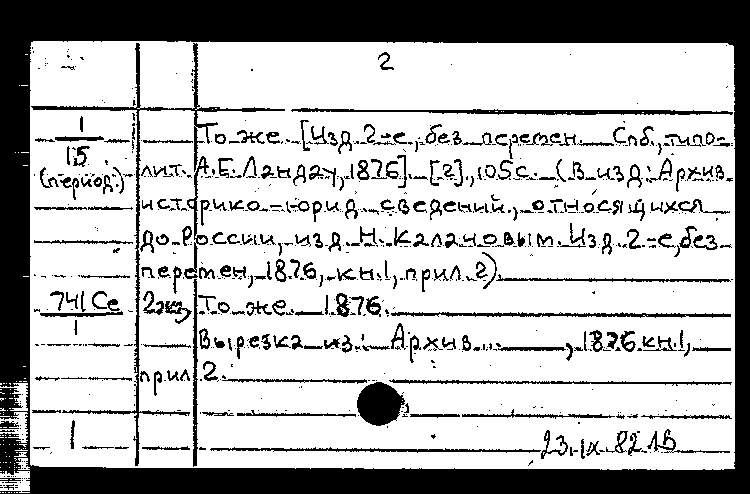 2
1 То же. [Изд. 2-е, без перемен. Спб., типо-
15 (период.) лит. А.Е. Ландау, 1876]. [2], 105с. (В изд: Архив
историко-юрид. сведений, относящихся
до России, изд. Н. Калановым. Изд. 2-е, без
перемен, 1876, кн.1, прил. 2).
741 Се 2экз, То же. 1876.
1 Вырезка из: Архив... , 1876 кн.1,
прил 2.
1 23.IX 82 ЛВ